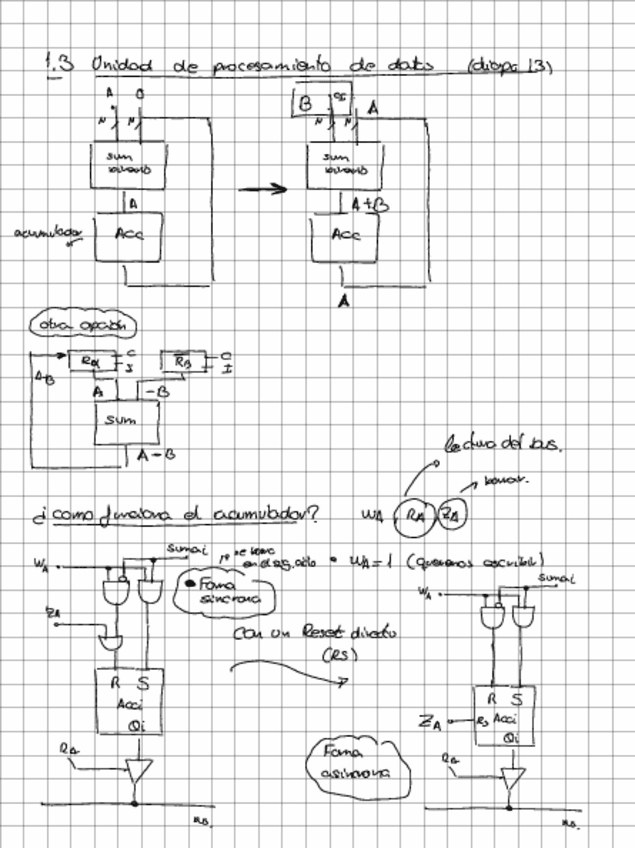 1.3 Unidad de procesamiento de datos (diapo 13)
A 0
N N
sum
A
Acc
acumulador
B
A
N N
sum
A+B
Acc
A
otra opción
RA C I
RB C I
A-B
A -B
sum
A-B
lectura del bus.
borrar.
¿como funciona el acumulador?
WA RA ZA
WA sumai
• WA=1 (queremos escribir)
• Forma
sincrona
ZA
Con un Reset directo
(RS)
R S
Acci
Qi
RA
WA sumai
R S
ZA Rs Acci
Qi
RA
Forma
asincrona